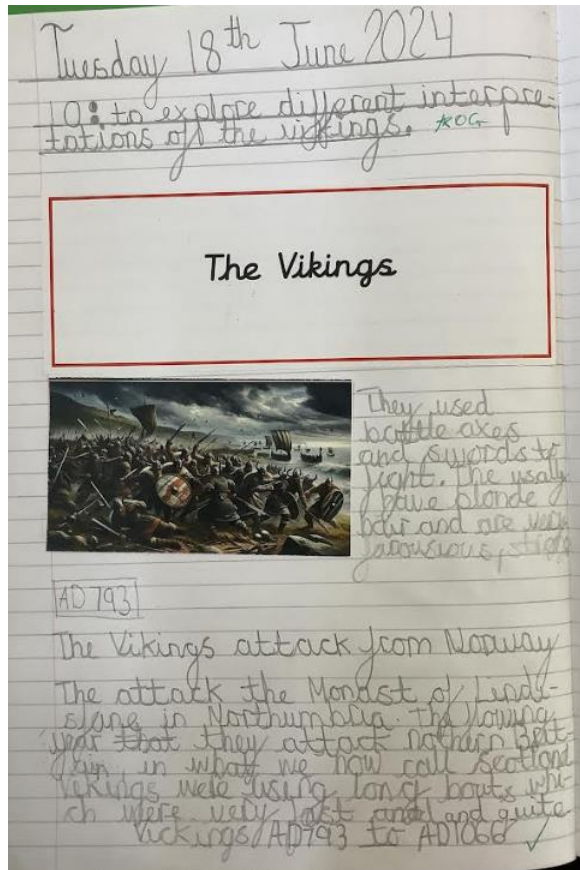 Tuesday 18th June 2024
LO: to explore different interpre-
tations of the vikings. KOG
The Vikings
They used
battle axes
and swords to
fight. The usaly
have blonde
hair and are very
AD 793
The Vikings attack from Norway
The attack the Monast of Lindi-
sfane in Northumbria. The
year that they attack nothern
in what we now call Scotland
Vikings were using long boats whi-
ch were very fast and and quite
Vickings AD793 to AD1066